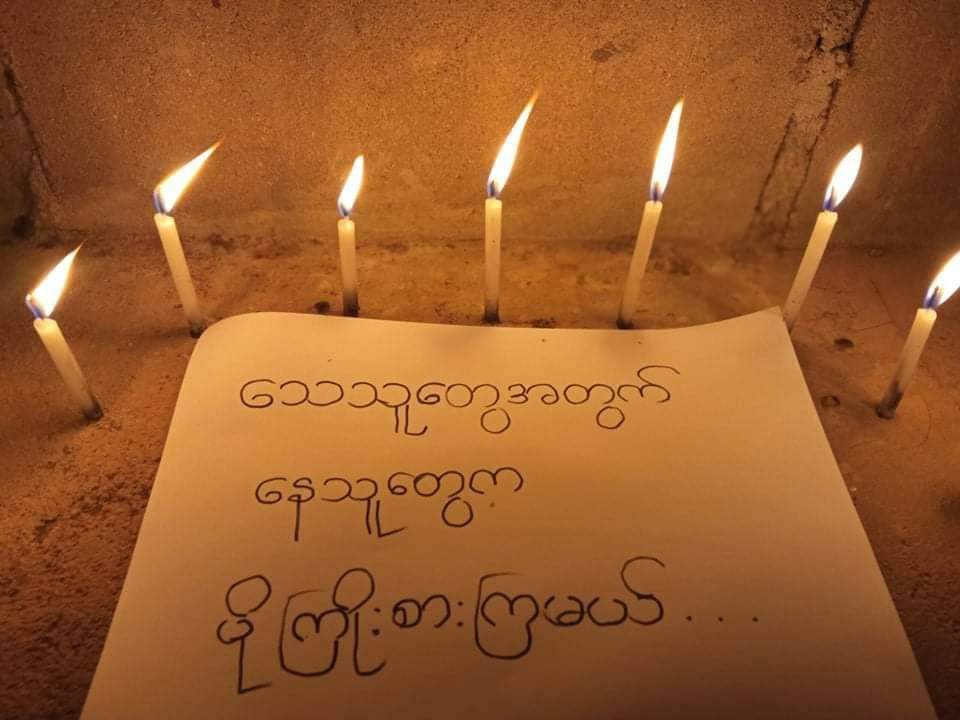 သေသူတွေအတွက်
နေသူတွေက
ပိုကြိုးစားကြမယ်...